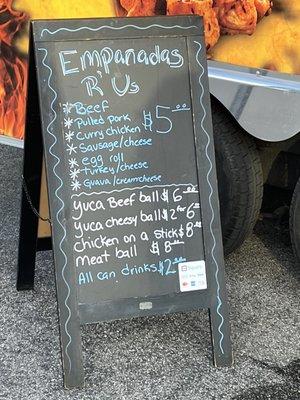 Empanadas
R Us
* Beef
* Pulled pork
* Curry chicken
* Sausage/cheese
$5.00
* egg roll
* Turkey/cheese
* Guava/creamcheese
yuca Beef ball $6.00
yuca cheesy ball $2 for $6
chicken on a stick $8.00
meat ball $8.00
All can drinks $2.00